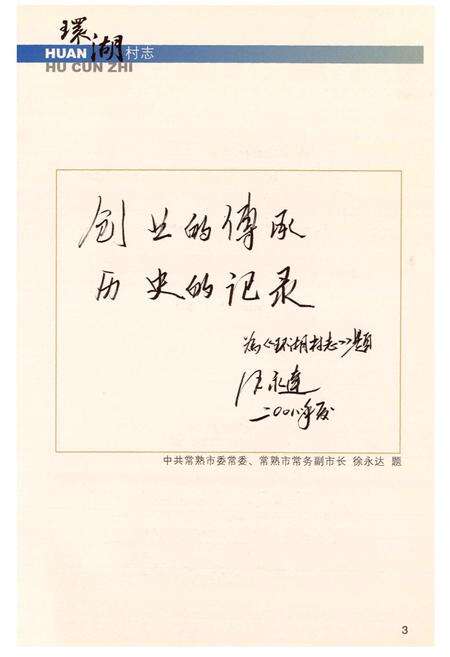 環湖
HUAN 村志
HU CUN ZHI
创业的傳承
历史的记录
为《环湖村志》题
徐永達
年夏
中共常熟市委常委、常熟市常务副市长 徐永达 题
3